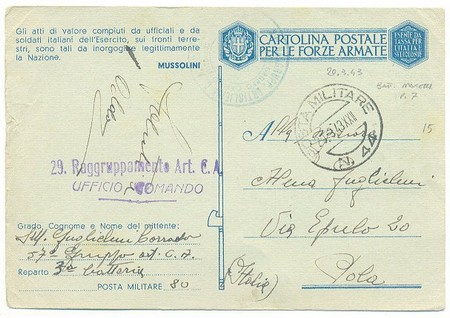 Gli atti di valore compiuti da ufficiali e da
soldati italiani dell'Esercito, sui fronti terre-
stri, sono tali da inorgoglire legittimamente
la Nazione.
MUSSOLINI
CARTOLINA POSTALE
PER LE FORZE ARMATE
29.3.43
POSTA MILITARE
N. 44
15
29. Raggruppamento Art. C.A.
UFFICIO COMANDO
Grado, Cognome e Nome del mittente:
Guglielmi Corrado
57° Gruppo art. C.A.
Reparto 3a batteria
POSTA MILITARE 80
A
Guglielmi
Via Epulo 20
(Italia) Pola